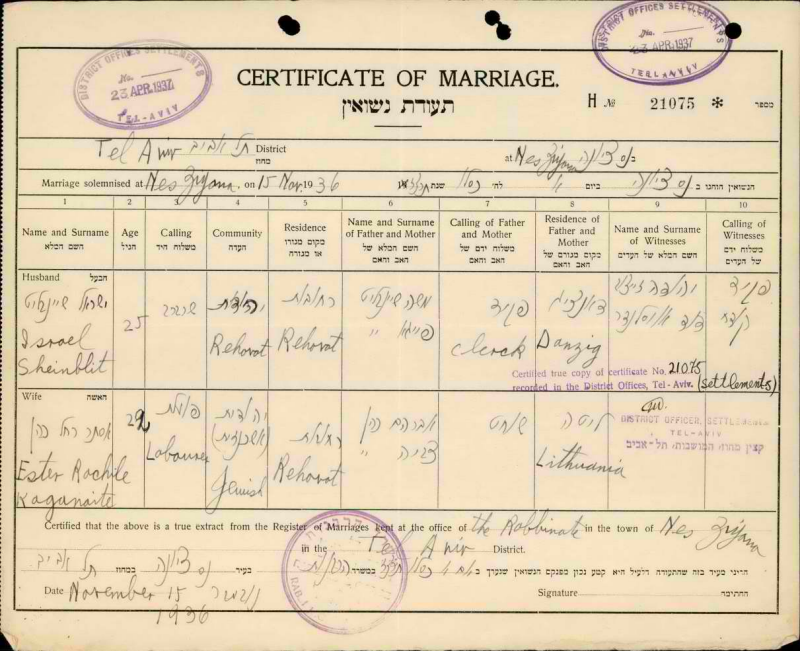 DISTRICT OFFICES SETTLEMENTS
No.
23 APR. 1937
TEL-AVIV
DISTRICT OFFICES SETTLEMENTS
No.
23 APR. 1937
TEL-AVIV
CERTIFICATE OF MARRIAGE.
תעודת נשואין
H No. 21075 * מספר
Tel Aviv תל אביב District מחוז at Nes Zijona בנס ציונה
Marriage solemnised at Nes Zijona. on 15 Nov. 1936 הנשואין הוחגו ב נס ציונה ביום א' לח' כסלו שנת תרצ"ז
1 2 3 4 5 6 7 8 9 10
Name and Surname Age Calling Community Residence Name and Surname of Father and Mother Calling of Father and Mother Residence of Father and Mother Name and Surname of Witnesses Calling of Witnesses
השם המלא הגיל משלוח היד העדה מקום מגורו או מגורה השם המלא של האב והאם משלוח ידם של האב והאם מקום מגורם של האב והאם השם המלא של העדים משלוח ידם של העדים
Husband הבעל
ישראל שיינבליט
25
רחובות
משה שיינבליט
פייגא "
פקיד
דאנציג
פקיד
Israel
Sheinblit
Rehovot
Rehovot
Clerck
Danzig
Certified true copy of certificate No. 21075
recorded in the District Offices, Tel-Aviv. (settlements)
Wife האשה
אסתר רחל כהן
פועלת
יהודית
(אשכנזית)
רחובות
אברהם כהן
צביה "
שוחט
ליטה
Ester Rachile
Kaganaite
Labourer
Jewish
Rehovot
Lithuania
DISTRICT OFFICER, SETTLEMENTS
TEL-AVIV
קצין מחוז המושבות, תל-אביב
Certified that the above is a true extract from the Register of Marriages kept at the office of the Rabbinate in the town of Nes Zijona
in the Tel Aviv District.
הריני מעיד בזה שהתעודה דלעיל היא קטע נכון מפנקס הנשואין שנערך ב במשרד הרבנות בעיר נס ציונה במחוז תל אביב
Date November 15 נובמבר
1936
Signature החתימה